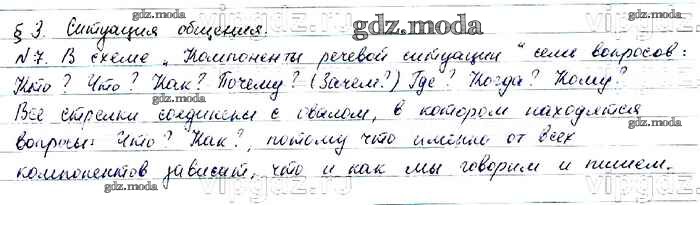 § 3. Ситуация общения.
gdz.moda
N7. В схеме „Компоненты речевой ситуации“ семь вопросов:
Кто? Что? Как? Почему? (Зачем?) Где? Когда? Кому?
Все стрелки соединены с овалом, в котором находятся
вопросы: Что? Как?, потому что именно от всех
компонентов зависит, что и как мы говорим и пишем.
gdz.moda
gdz.moda
gdz.moda
gdz.moda
vipgdz.ru
vipgdz.ru